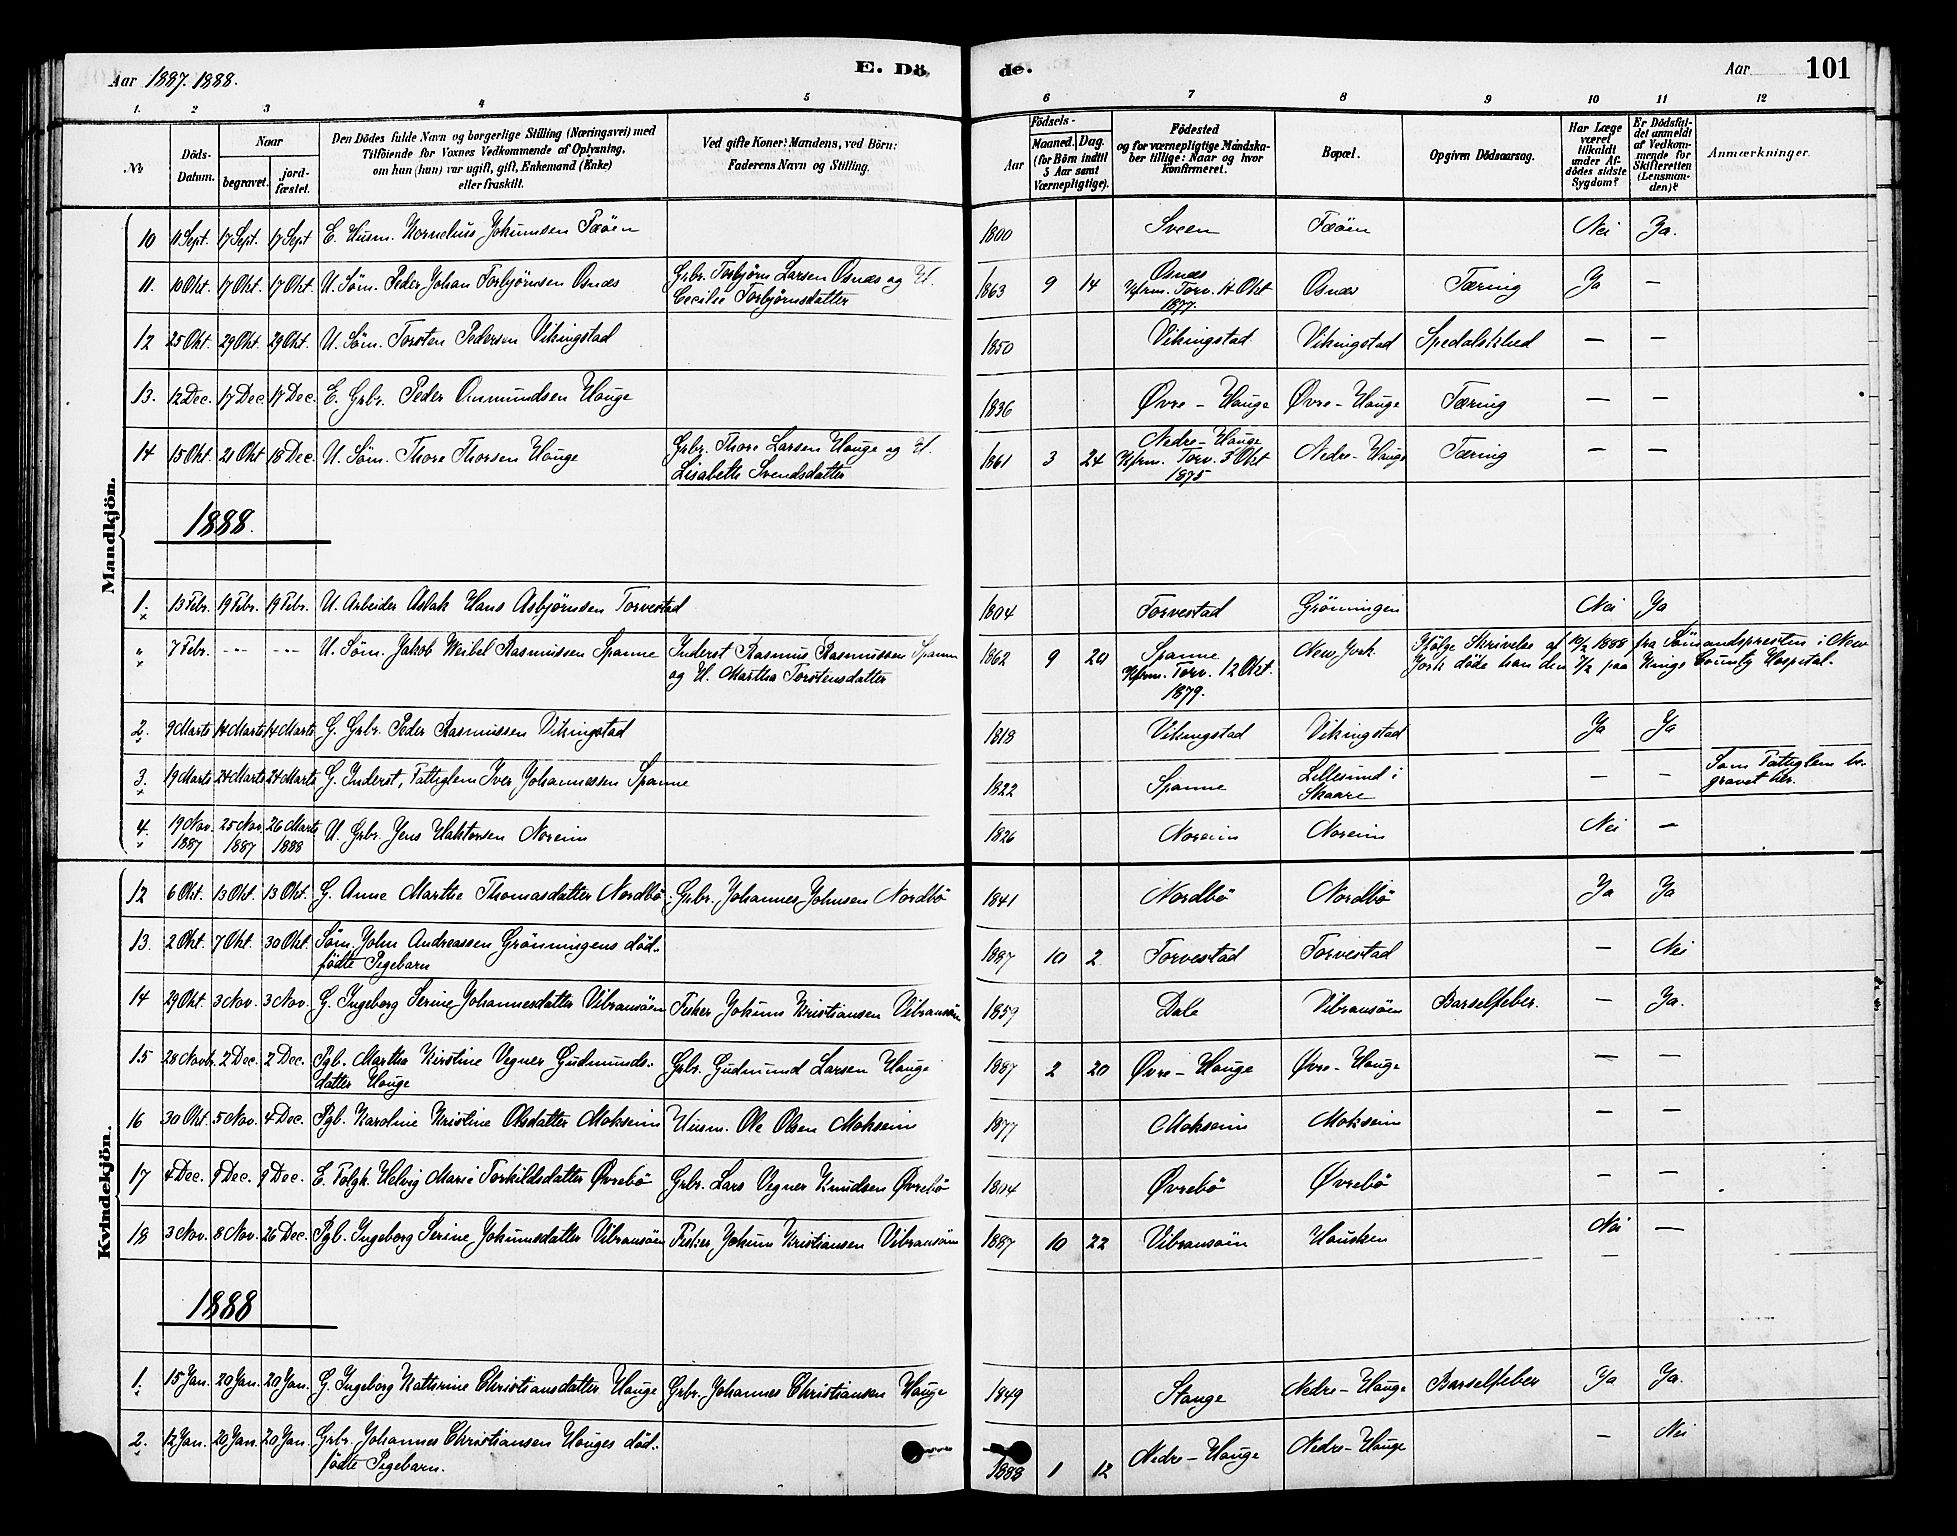 Aar 1887. 1888.
E. Dö
de.
Aar
101
1.
2
3
4
5
6
7
8
9
10
11
12
No
Döds-
Datum.
Naar
begravet.
jord-
fæstet.
Den Dödes fulde Navn og borgerlige Stilling (Næringsvei) med
Tilföiende for Voxnes Vedkommende af Oplysning,
om han (hun) var ugift, gift, Enkemand (Enke)
eller fraskilt.
Ved gifte Koner: Mandens, ved Börn:
Faderens Navn og Stilling.
Födsels-
Aar
Maaned. Dag.
(for Börn indtil
5 Aar samt
Værnepligtige).
Födested
og for værnepligtige Mandska-
ber tillige: Naar og hvor
konfirmeret.
Bopæl.
Opgiven Dödsaarsag.
Har Læge
været
tilkaldt
under Af-
dödes sidste
Sygdom?
Er Dödsfal-
det anmeldt
af Vedkom-
mende for
Skifteretten
(Lensman-
den)?
Anmærkninger.
Mandkjön.
10 11 Sept. 17 Sept. 17 Sept E. Husm. Kornelius Jokumsen Fæöen 1800 Sveen Fæöen Nei Ja.
11. 10 Okt. 17 Okt. 17 Okt. U. Söm. Peder Johan Torbjörnsen Osnæs Grbr. Torbjörn Larsen Osnæs og H. Cecilie Torbjörnsdatter 1863 9 14 Osnæs Kfrm. Torv. 14 Okt 1877. Osnæs Tæring Ja —
12 25 Okt. 29 Okt. 29 Okt. U. Söm. Torsten Pedersen Vikingstad 1850 Vikingstad Vikingstad Spedalskhed — —
13. 12 Dec. 17 Dec. 17 Dec. E. Grbr. Peder Omundsen Hauge 1836 Øvre-Hauge Øvre-Hauge Tæring — —
14 15 Okt. 21 Okt 18 Dec. U. Söm. Thore Thorsen Hauge Grbr. Thore Larsen Hauge og H. Lisabeth Svendsdatter 1861 3 24 Nedre-Hauge Kfrm. Torv. 3 Okt 1875 Nedre-Hauge Tæring — —
1888.
1. 13 Febr. 19 Febr. 19 Febr. U. Arbeider Aslak Hans Asbjörnsen Torvestad 1804 Torvestad Grönningen Nei Ja
" 7 Febr. --- --- U. Söm. Jakob Weibel Rasmussen Spanne Inderst Rasmus Rasmussen Spanne og H. Martha Torstensdatter 1862 9 20 Spanne Kfrm. Torv. 12 Okt. 1879. New York Ifölge Skrivelse af 10/2 1888 fra Sömandspresten i New York döde han den 7/2 paa Kings County Hospital.
2. 9 Marts 14 Marts 14 Marts G. Grbr. Peder Rasmussen Vikingstad 1818 Vikingstad Vikingstad Ja Ja
3. 19 Marts 24 Marts 24 Marts G. Inderst, Fattiglem Iver Johannessen Spanne 1822 Spanne Lillesund i Skaare — — Som Fattiglem be- gravet her.
4. 19 Nov. 1887 25 Nov. 1887 26 Marts 1888 U. Grbr. Jens Haktorsen Noreim 1826 Noreim Noreim Nei —
Kvindekjön.
12 6 Okt. 13 Okt. 13 Okt. G. Anne Marthe Thomasdatter Nordbö Grbr. Johannes Johnsen Nordbö 1841 Nordbö Nordbö Ja Ja
13. 2 Okt. 7 Okt. 30 Okt. Söm. John Andreassen Grönningens död- födte Pigebarn 1887 10 2 Torvestad Torvestad — Nei
14 29 Okt. 3 Nov. 3 Nov. G. Ingeborg Serine Johannesdatter Vibransöen Fisker Jokum Kristiansen Vibransöen 1859 Dale Vibransöen Barselfeber. — Ja.
15 28 Novbr. 2 Dec. 2 Dec. Pgb. Martha Kirstine Vegner Gudmunds- datter Hauge Grbr. Gudmund Larsen Hauge 1887 2 20 Øvre-Hauge Øvre-Hauge — —
16 30 Okt. 5 Nov. 4 Dec. Pgb. Karoline Kristine Olsdatter Mokseim Husm. Ole Olsen Mokseim 1877 Mokseim Mokseim — —
17 4 Dec. 9 Dec. 9 Dec. E. Folgk. Helvig Marie Torkildsdatter Øvrebö Grbr. Lars Vegner Knudsen Øvrebö Øvrebö Øvrebö — —
18 3 Nov. 8 Nov. 26 Dec. Pgb. Ingeborg Serine Jokumsdatter Vibransöen Fisker Jokum Kristiansen Vibransöen 1887 10 22 Vibransöen Hausken Nei —
1888
1. 15 Jan. 20 Jan. 20 Jan. G. Ingeborg Kathrine Christiansdatter Hauge Grbr. Johannes Christiansen Hauge 1849 Stange Nedre-Hauge Barselfeber Ja Ja.
2. 12 Jan. 20 Jan. 20 Jan. Grbr. Johannes Christiansen Hauges död- födte Pigebarn. 1888 1 12 Nedre-Hauge Nedre-Hauge — Nei